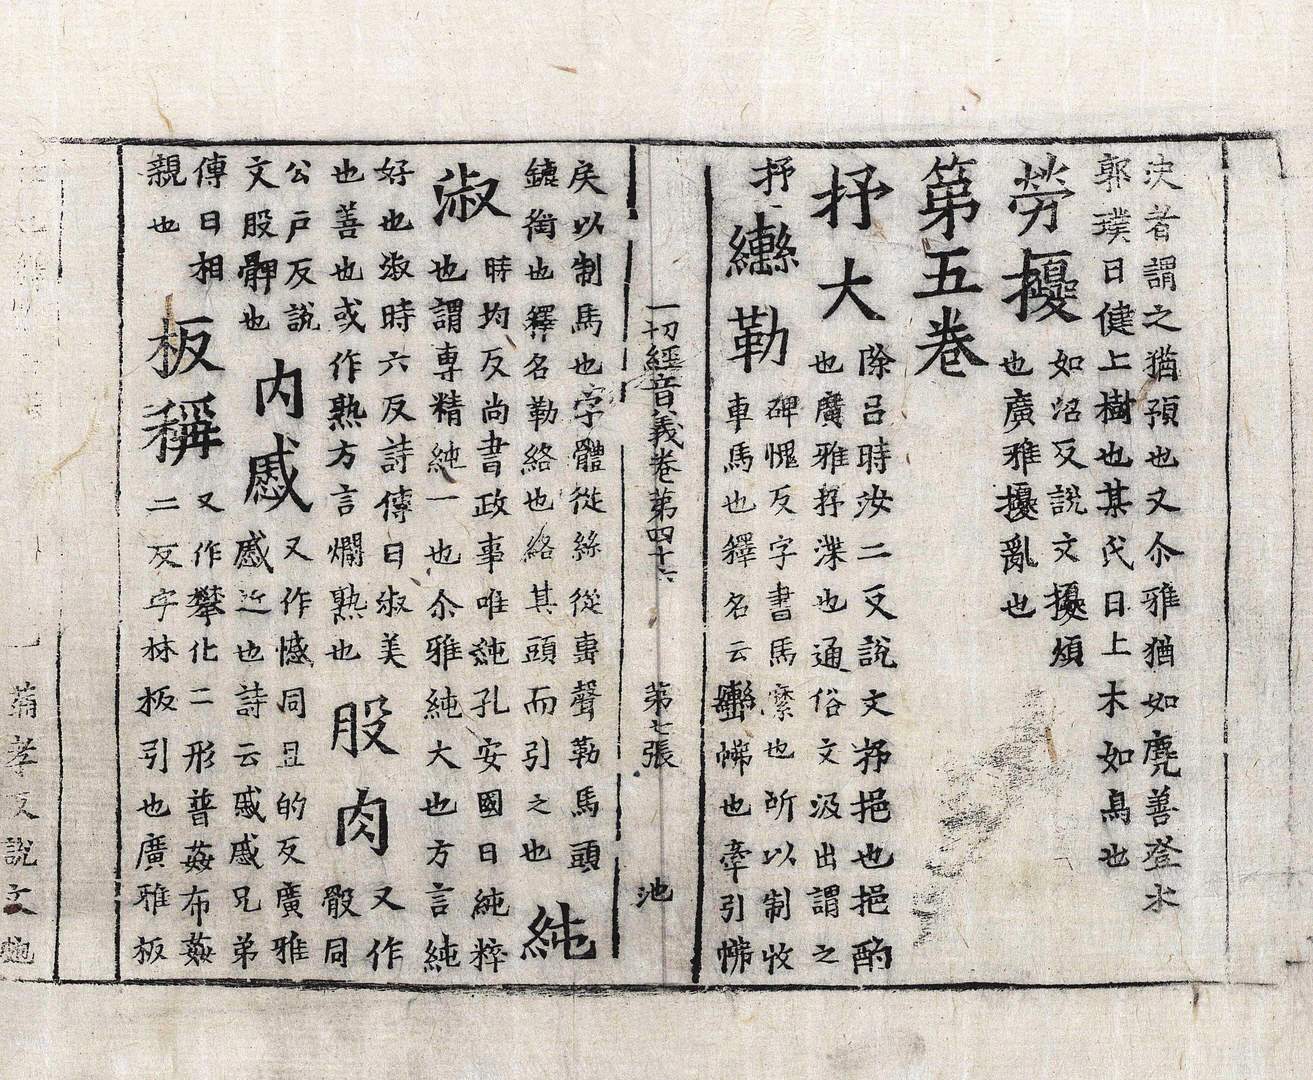 決者謂之猶預也又尒雅猶如麂善登木
郭璞曰健上樹也某氏曰上木如鳥也
勞擾
如沼反說文擾煩
也廣雅擾亂也
第五卷
抒大
除呂時汝二反說文抒挹也挹酌
也廣雅抒渫也通俗文汲出謂之
抒
轡勒
碑愧反字書馬縻也所以制收
車馬也釋名云轡怫也牽引怫
一切經音義卷第四十六
第七張
池
戾以制馬也字體從絲從軎聲勒馬頭
鑣銜也釋名勒絡也絡其頭而引之也
純
淑
時均反尚書政事唯純孔安國曰純粹
也謂專精純一也尒雅純大也方言純
好也淑時六反詩傳曰淑美
也善也或作熟方言爛熟也
股肉
又作
骰同
公戶反說
文股髀也
內慼
又作慽同且的反廣雅
慼近也詩云戚戚兄弟
傳曰相
親也
板稱
又作攀化二形普姦布姦
二反字林板引也廣雅板
蒲孝反說文